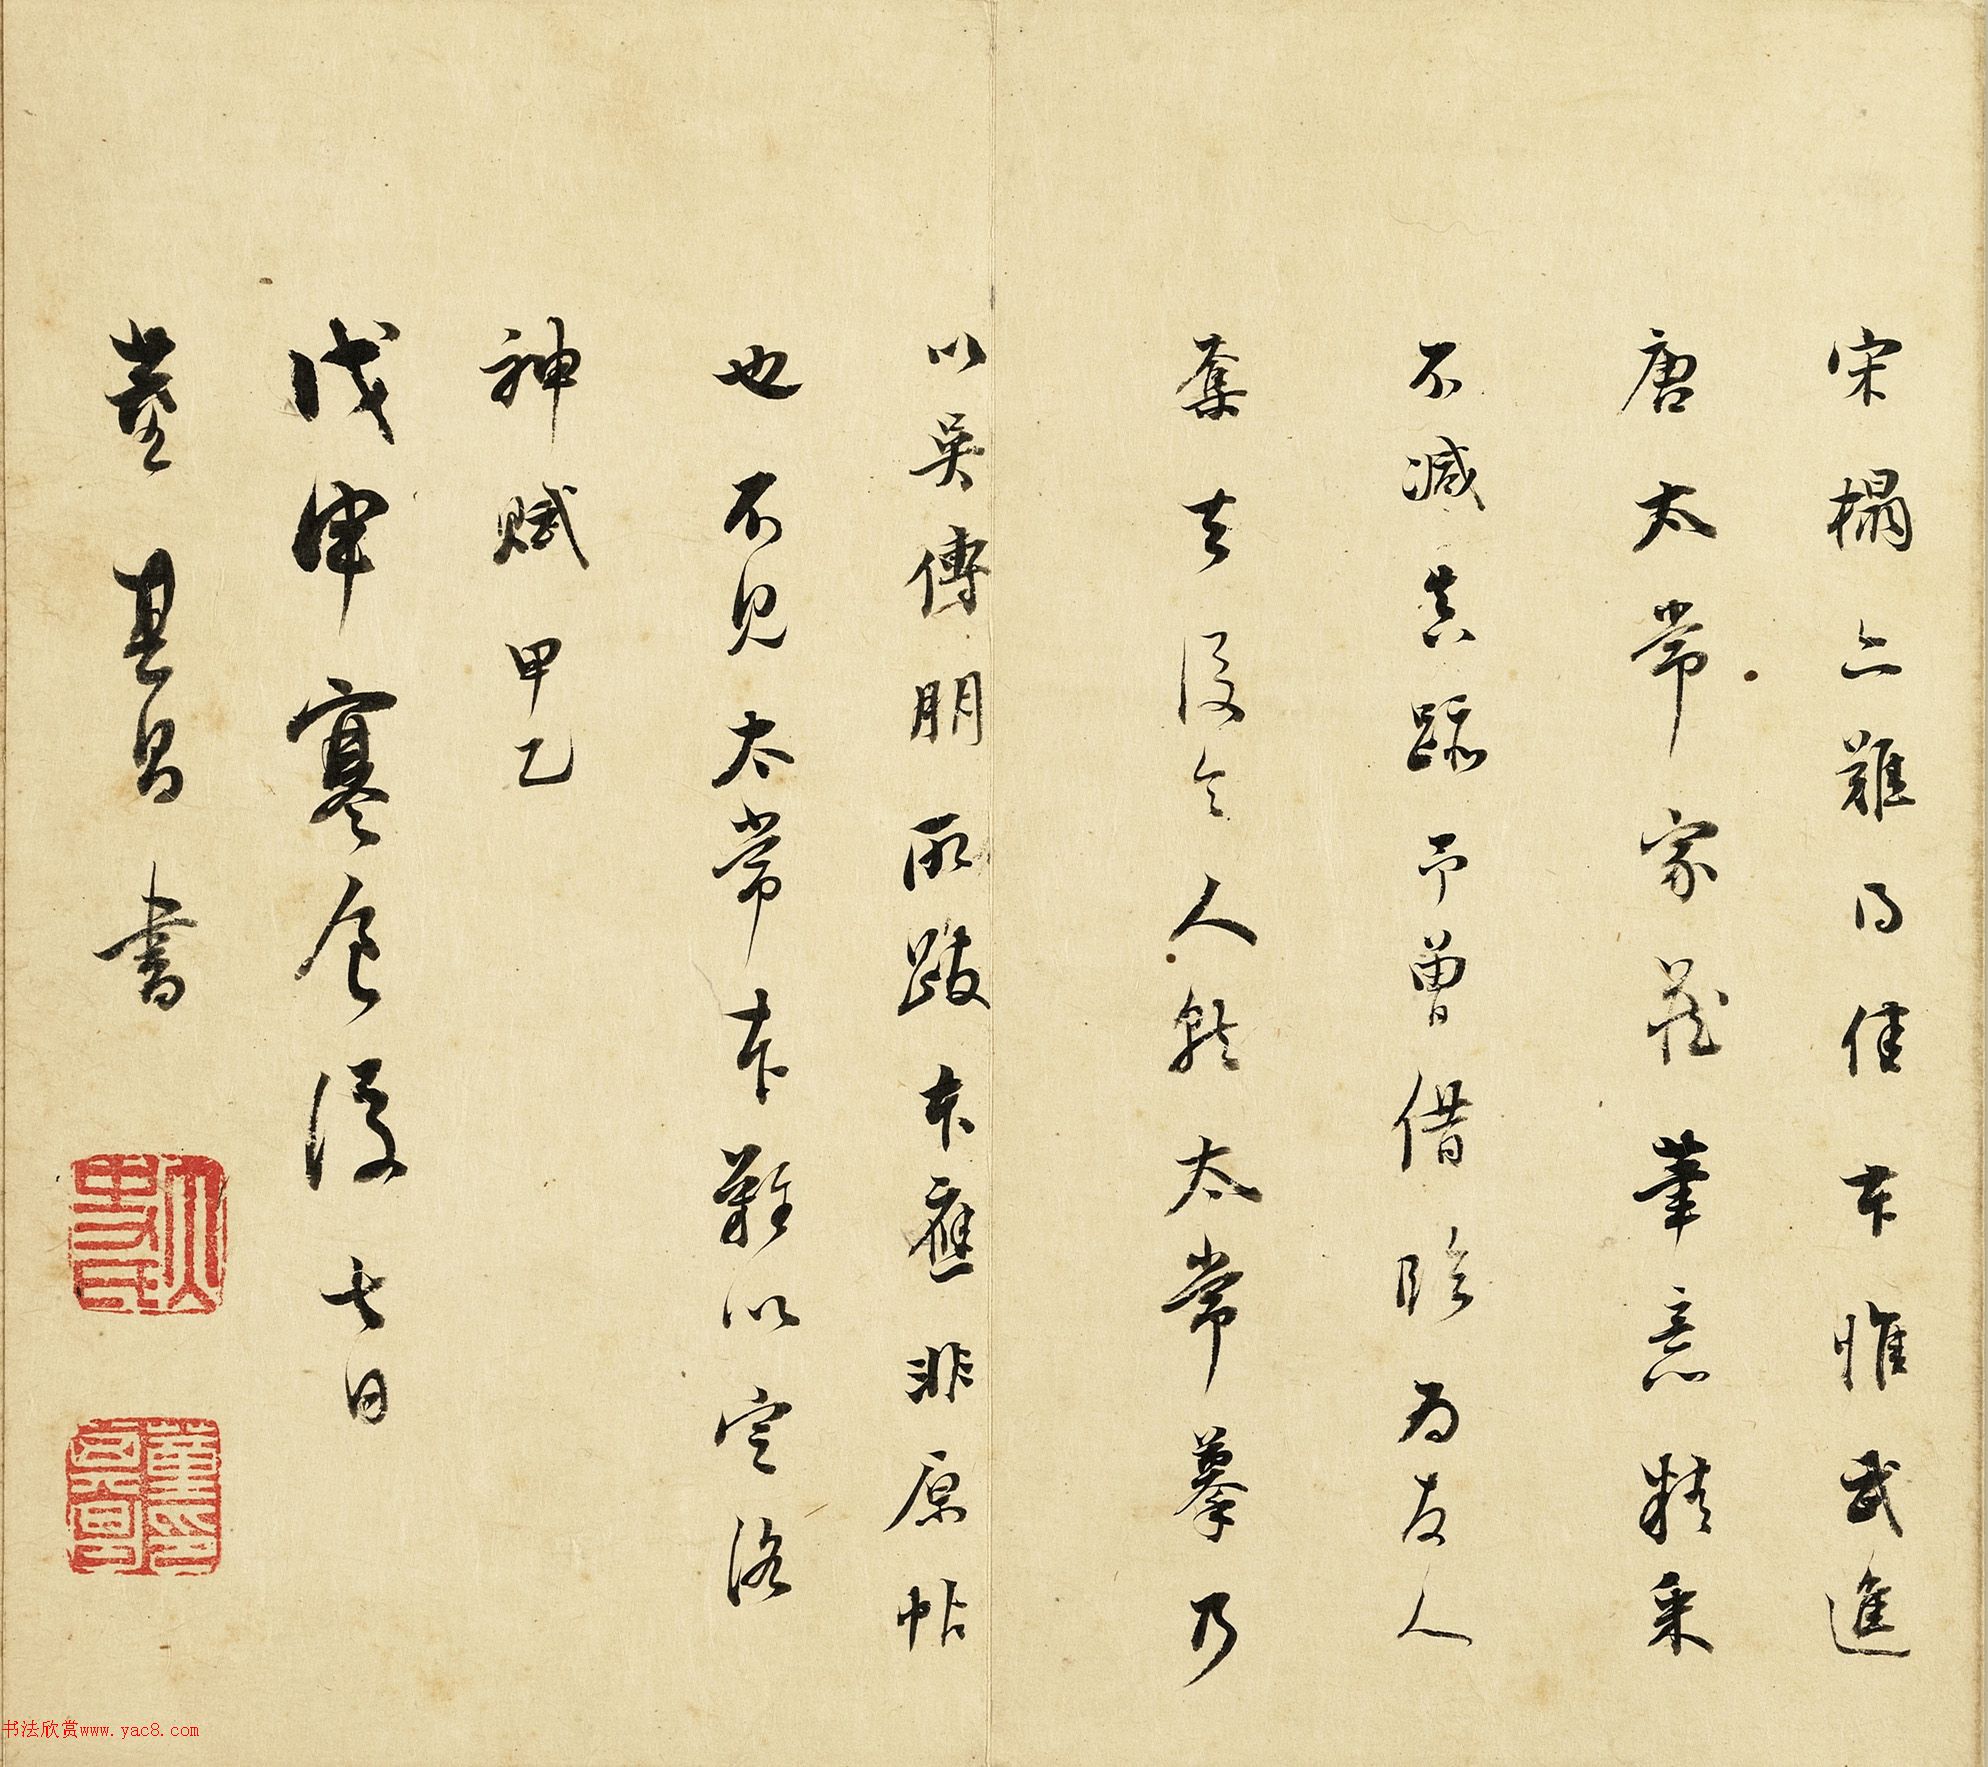 宋榻亦難得佳本惟武進
唐太常家藏筆意精采
不減真跡予曾借臨為友人
奪去後令人能太常摹乃
以吳傅朋所跋本應非原帖
也不見太常本難以定洛
神賦甲乙
戊申寒食後七日
董其昌書
太史氏
董其昌印
书法欣赏www.yac8.com